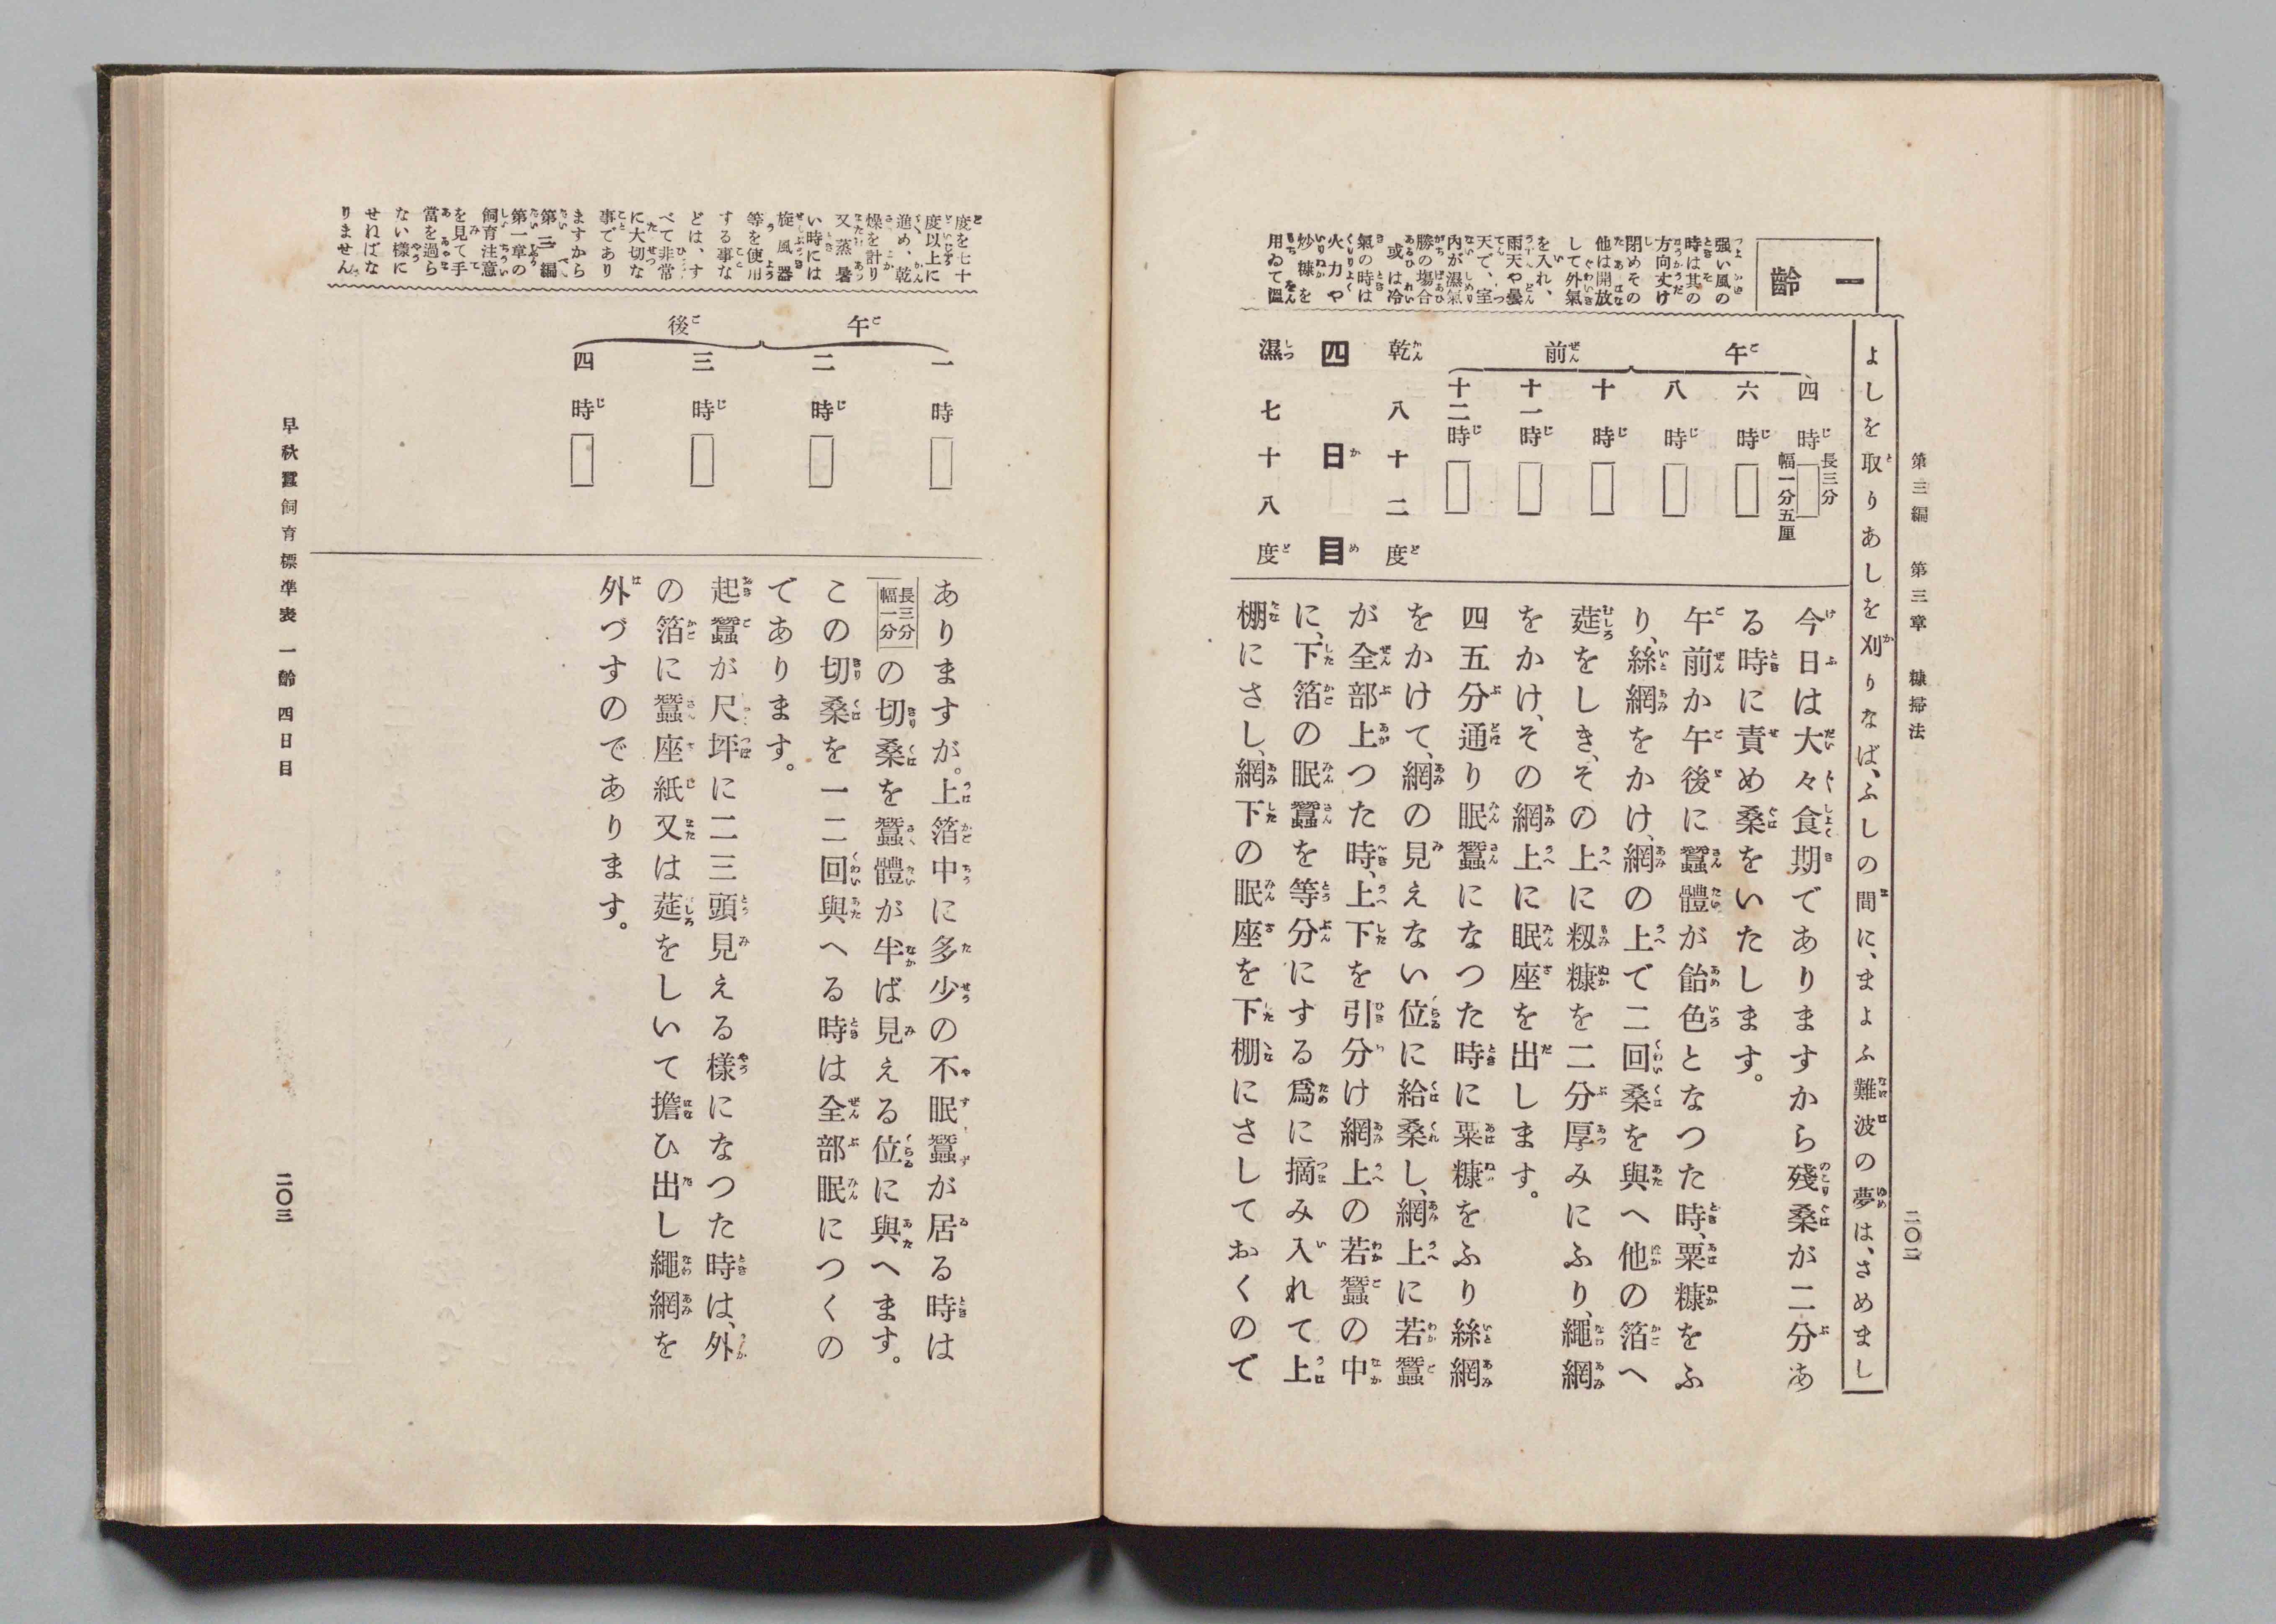 第三編　第三章　糠掃法
二〇二
よしを取りあしを刈りなば、ふしの間に、まよふ難波の夢は、さめまし
一齡
强い風の
時は其の
方向丈け
閉めその
他は開放
して外氣
を入れ、
雨天や曇
天で、室
內が濕氣
勝の場合
或は冷
氣の時は
火力や
炒糠を
用ゐて溫
午前
四時
長三分
幅一分五厘
六時
八時
十時
十一時
十二時
乾八十二度
四日目
濕七十八度
今日は大々食期でありますから殘桑が二分あ
る時に責め桑をいたします。
午前か午後に蠶體が飴色となつた時、粟糠をふ
り、絲網をかけ、網の上で二回桑を與へ他の箔へ
莚をしき、その上に籾糠を二分厚みにふり、繩網
をかけ、その網上に眠座を出します。
四五分通り眠蠶になつた時に粟糠をふり絲網
をかけて、網の見えない位に給桑し、網上に若蠶
が全部上つた時、上下を引分け網上の若蠶の中
に、下箔の眠蠶を等分にする爲に摘み入れて上
棚にさし、網下の眠座を下棚にさしておくので
度を七十
度以上に
進め、乾
燥を計り
又蒸暑
い時には
旋風器
等を使用
する事な
どは、す
べて非常
に大切な
事であり
ますから
第三編
第一章の
飼育注意
を見て手
當を過ら
ない樣に
せねばな
りません
午後
一時
二時
三時
四時
ありますが。上箔中に多少の不眠蠶が居る時は
長三分
幅一分
の切桑を蠶體が半ば見える位に與へます。
この切桑を一二回與へる時は全部眠につくの
であります。
起蠶が尺坪に二三頭見える樣になつた時は、外
の箔に蠶座紙又は莚をしいて擔ひ出し繩網を
外づすのであります。
早秋蠶飼育標準表　一齡　四日目
二〇三